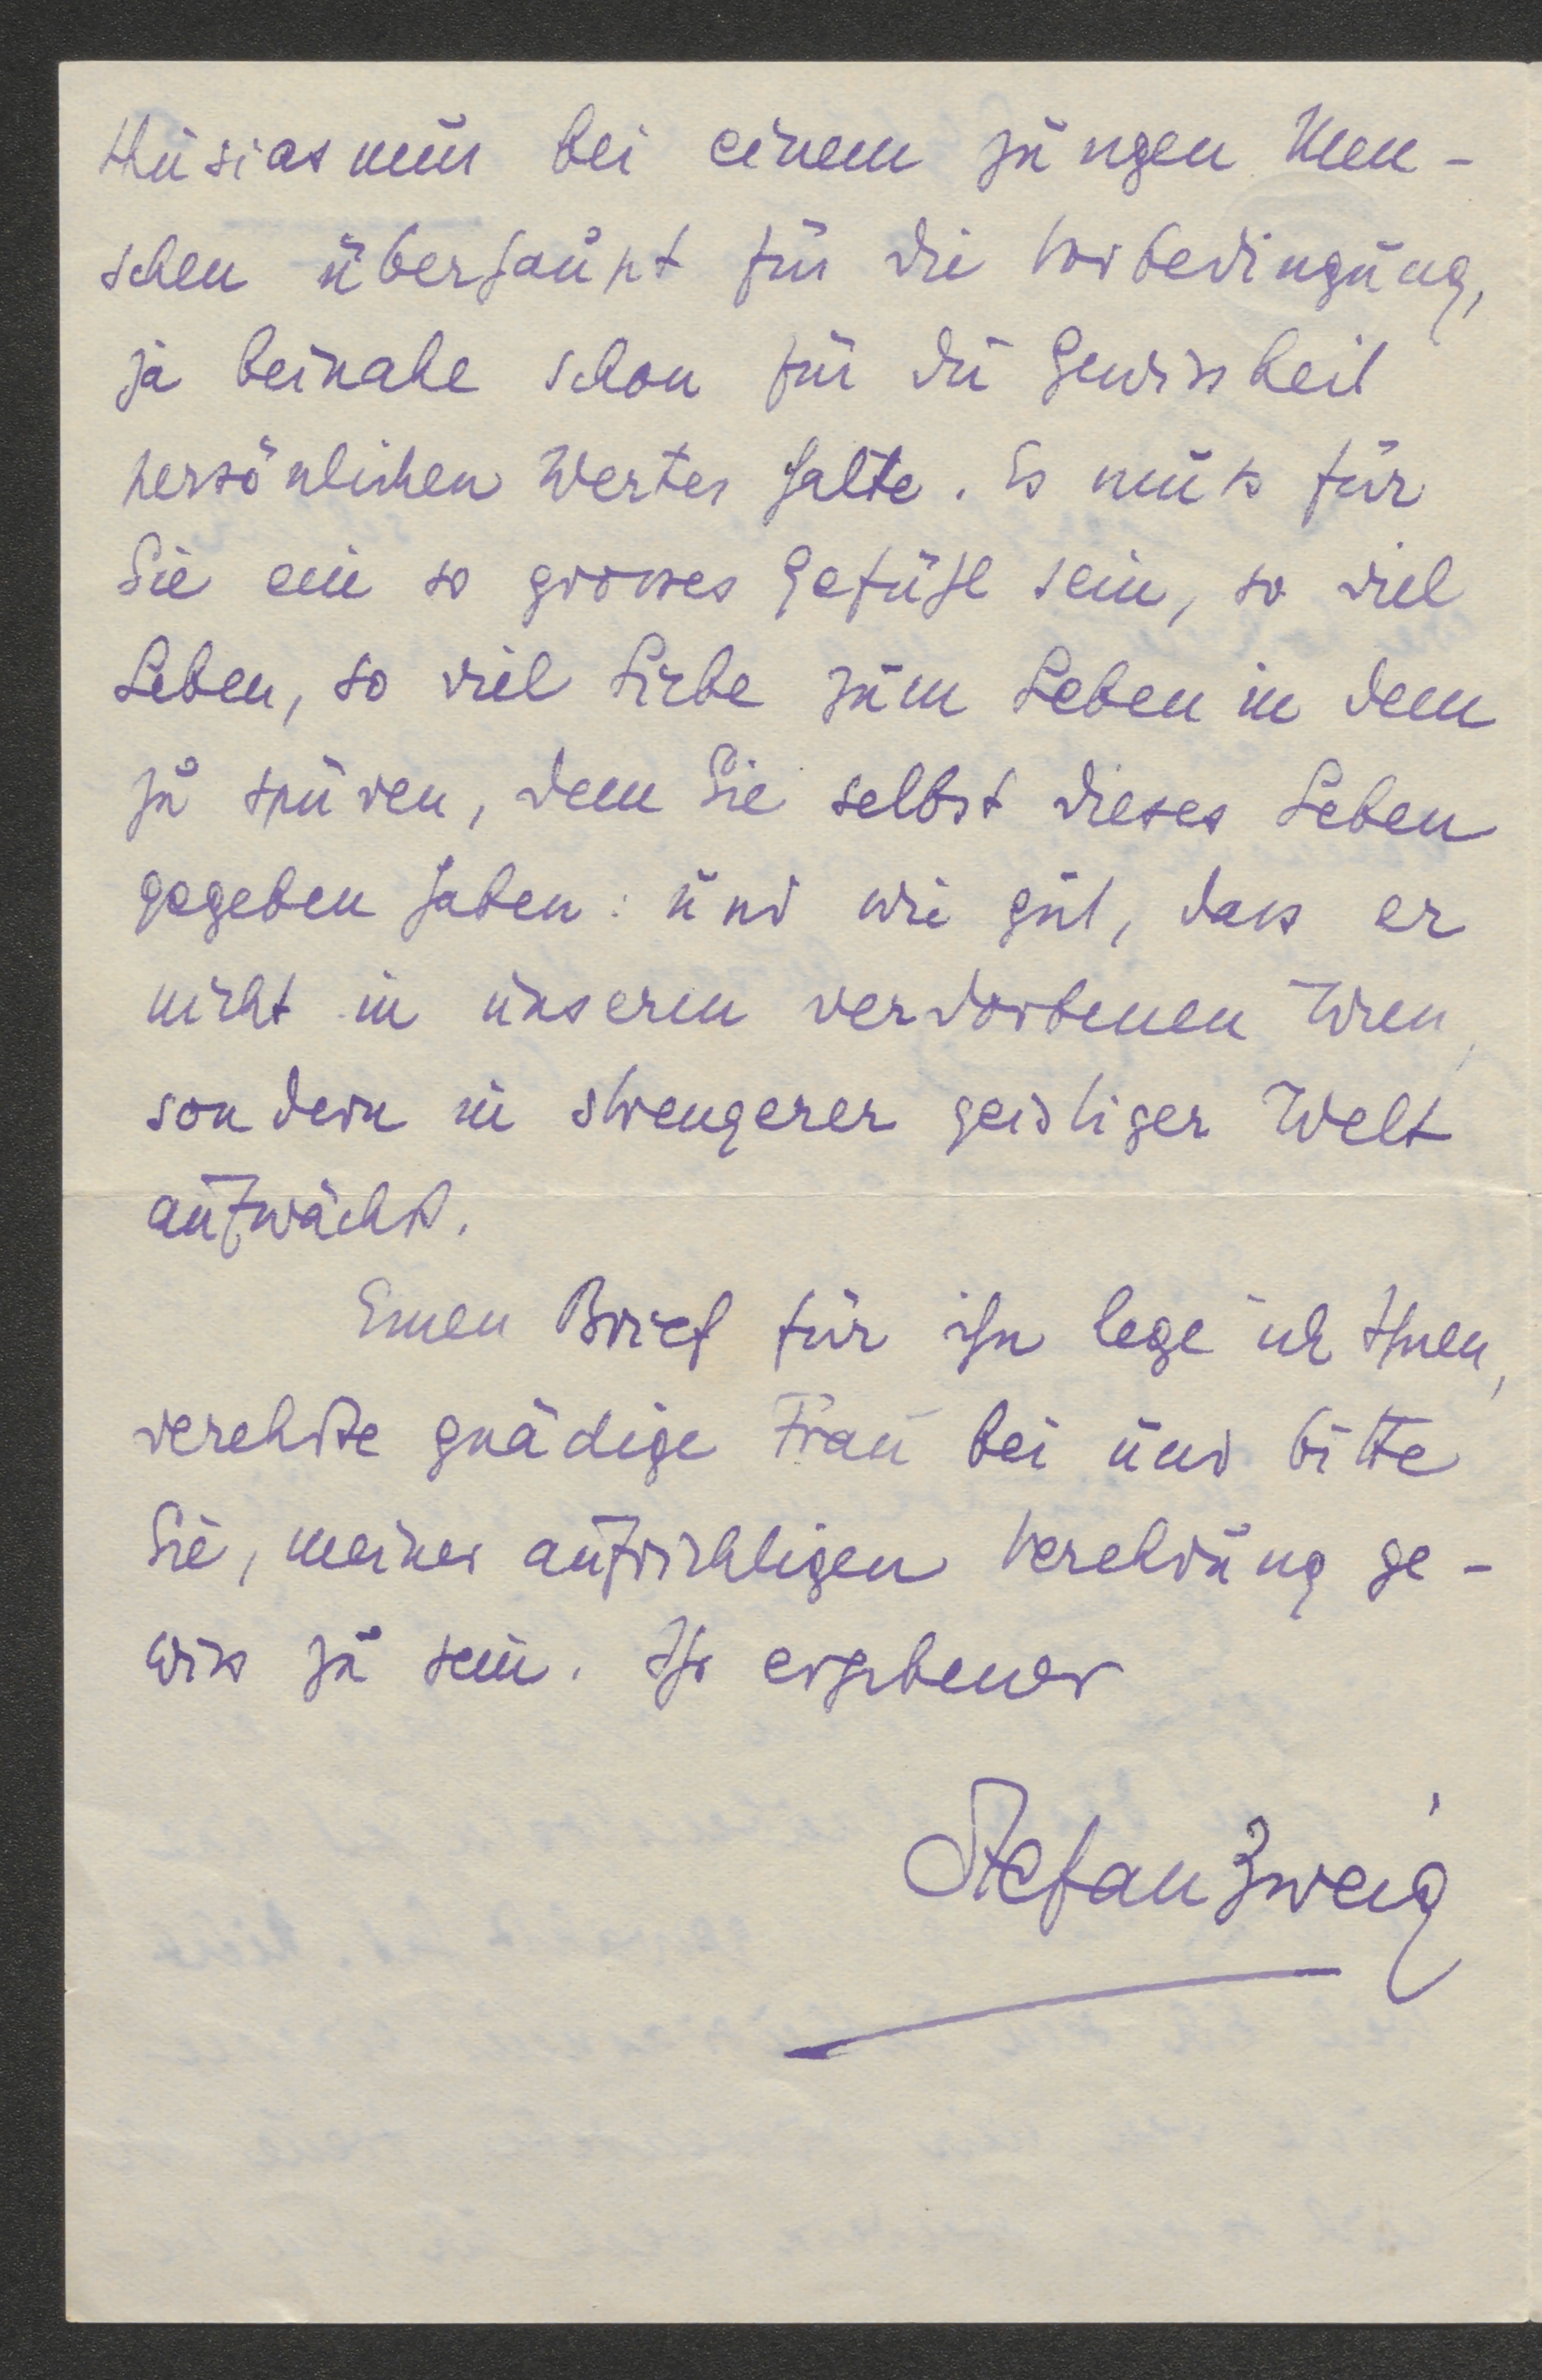 thusiasmus bei einem jungen Men-
schen überhaupt für die Vorbedingung,
ja beinahe schon für die Gewissheit
persönlichen Wertes halte. Es muss für
Sie ein so grosses Gefühl sein, so viel
Leben, so viel Liebe zum Leben in dem
zu spüren, dem Sie selbst dieses Leben
gegeben haben: und wie gut, dass er
nicht in unserem verdorbenen Wien,
sondern in strengerer geistiger Welt
aufwächst.
Einen Brief für ihn lege ich Ihnen,
verehrte gnädige Frau bei und bitte
Sie, meiner aufrichtigen Verehrung ge-
wiss zu sein. Ihr ergebener
Stefan Zweig